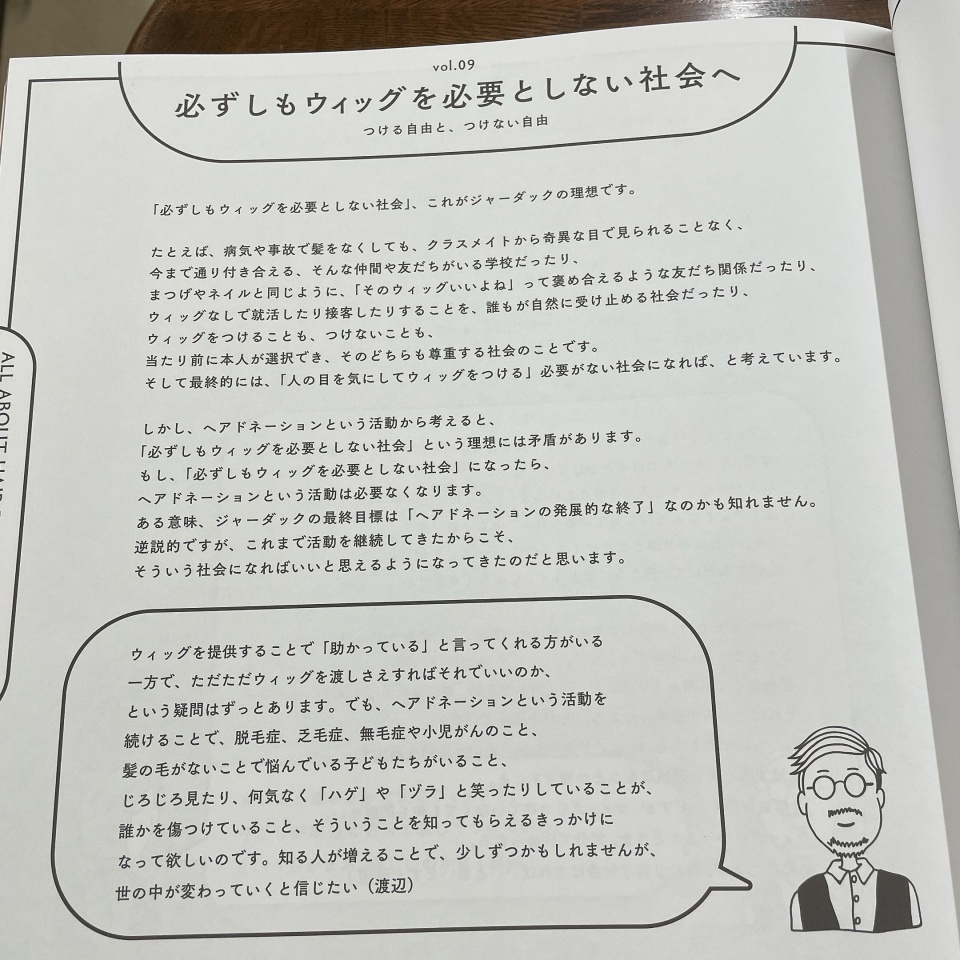 vol.09
必ずしもウィッグを必要としない社会へ
つける自由と、つけない自由
「必ずしもウィッグを必要としない社会」、これがジャーダックの理想です。
たとえば、病気や事故で髪をなくしても、クラスメイトから奇異な目で見られることなく、
今まで通り付き合える、そんな仲間や友だちがいる学校だったり、
まつげやネイルと同じように、「そのウィッグいいよね」って褒め合えるような友だち関係だったり、
ウィッグなしで就活したり接客したりすることを、誰もが自然に受け止める社会だったり、
ウィッグをつけることも、つけないことも、
当たり前に本人が選択でき、そのどちらも尊重する社会のことです。
そして最終的には、「人の目を気にしてウィッグをつける」必要がない社会になれば、と考えています。
しかし、ヘアドネーションという活動から考えると、
「必ずしもウィッグを必要としない社会」という理想には矛盾があります。
もし、「必ずしもウィッグを必要としない社会」になったら、
ヘアドネーションという活動は必要なくなります。
ある意味、ジャーダックの最終目標は「ヘアドネーションの発展的な終了」なのかも知れません。
逆説的ですが、これまで活動を継続してきたからこそ、
そういう社会になればいいと思えるようになってきたのだと思います。
ウィッグを提供することで「助かっている」と言ってくれる方がいる
一方で、ただただウィッグを渡しさえすればそれでいいのか、
という疑問はずっとあります。でも、ヘアドネーションという活動を
続けることで、脱毛症、乏毛症、無毛症や小児がんのこと、
髪の毛がないことで悩んでいる子どもたちがいること、
じろじろ見たり、何気なく「ハゲ」や「ヅラ」と笑ったりしていることが、
誰かを傷つけていること、そういうことを知ってもらえるきっかけに
なって欲しいのです。知る人が増えることで、少しずつかもしれませんが、
世の中が変わっていくと信じたい（渡辺）
ALL ABOUT HAIR